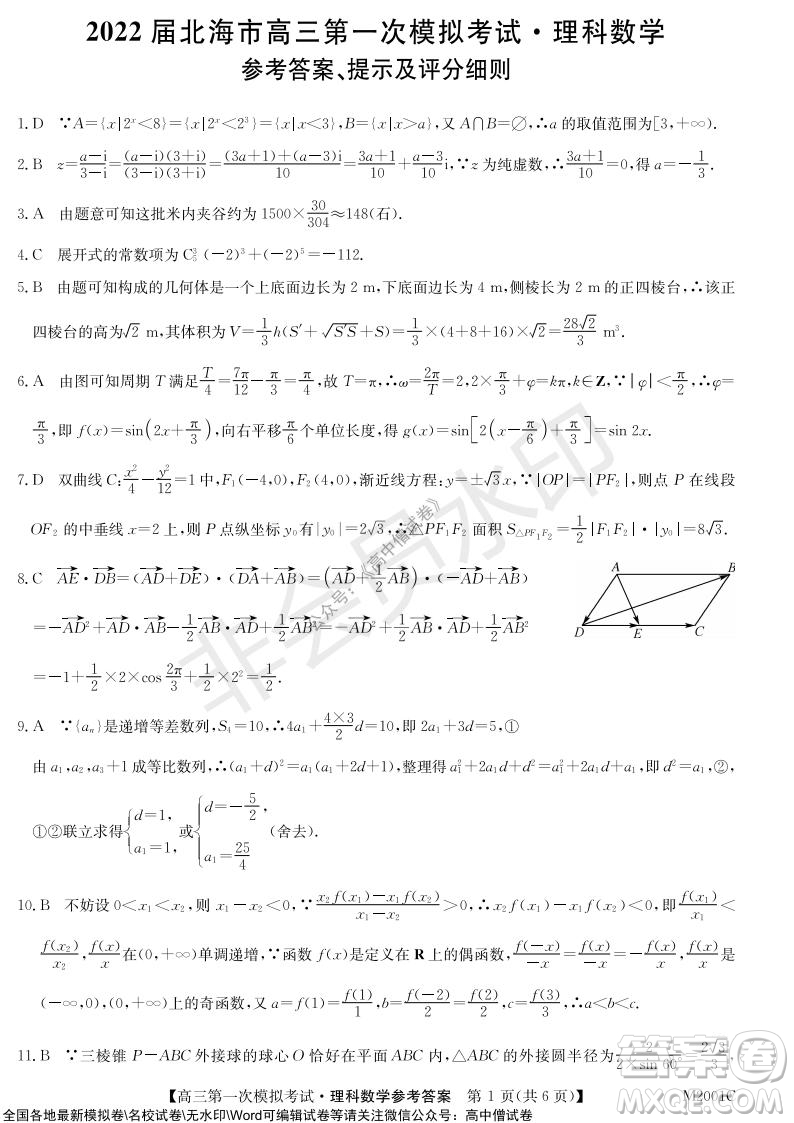 2022 届北海市高三第一次模拟考试·理科数学
参考答案、提示及评分细则
1. D ∵A={x|2^x<8}={x|2^x<2^3}={x|x<3},B={x|x>a},又 A∩B=∅,∴a 的取值范围为[3,+∞).
2. B z=\frac{a-i}{3-i}=\frac{(a-i)(3+i)}{(3-i)(3+i)}=\frac{(3a+1)+(a-3)i}{10}=\frac{3a+1}{10}+\frac{a-3}{10}i,∵z 为纯虚数,∴\frac{3a+1}{10}=0,得 a=-\frac{1}{3}.
3. A 由题意可知这批米内夹谷约为 1500×\frac{30}{304}≈148(石).
4. C 展开式的常数项为 C_6^3(-2)^3+(-2)^5=-112.
5. B 由题可知构成的几何体是一个上底面边长为 2 m,下底面边长为 4 m,侧棱长为 2 m 的正四棱台,∴该正
四棱台的高为\sqrt{2} m,其体积为 V=\frac{1}{3}h(S′+\sqrt{S′S}+S)=\frac{1}{3}×(4+8+16)×\sqrt{2}=\frac{28\sqrt{2}}{3} m^3.
6. A 由图可知周期 T 满足\frac{T}{4}=\frac{7π}{12}-\frac{π}{3}=\frac{π}{4},故 T=π,∴ω=\frac{2π}{T}=2,2×\frac{π}{3}+φ=kπ,k∈Z,∵|φ|<\frac{π}{2},∴φ=
\frac{π}{3},即 f(x)=sin(2x+\frac{π}{3}),向右平移\frac{π}{6}个单位长度,得 g(x)=sin[2(x-\frac{π}{6})+\frac{π}{3}]=sin 2x.
7. D 双曲线 C:\frac{x^2}{4}-\frac{y^2}{12}=1 中,F_1(-4,0),F_2(4,0),渐近线方程:y=±\sqrt{3}x,∵|OP|=|PF_2|,则点 P 在线段
OF_2 的中垂线 x=2 上,则 P 点纵坐标 y_0有|y_0|=2\sqrt{3},∴△PF_1F_2 面积 S_{△PF_1F_2}=\frac{1}{2}|F_1F_2|·|y_0|=8\sqrt{3}.
8. C \overrightarrow{AE}·\overrightarrow{DB}=(\overrightarrow{AD}+\overrightarrow{DE})·(\overrightarrow{DA}+\overrightarrow{AB})=(\overrightarrow{AD}+\frac{1}{2}\overrightarrow{AB})·(-\overrightarrow{AD}+\overrightarrow{AB})
=-\overrightarrow{AD}^2+\overrightarrow{AD}·\overrightarrow{AB}-\frac{1}{2}\overrightarrow{AB}·\overrightarrow{AD}+\frac{1}{2}\overrightarrow{AB}^2=-\overrightarrow{AD}^2+\frac{1}{2}\overrightarrow{AB}·\overrightarrow{AD}+\frac{1}{2}\overrightarrow{AB}^2
=-1+\frac{1}{2}×2×cos\frac{2π}{3}+\frac{1}{2}×2^2=\frac{1}{2}.
A B
D E C
9. A ∵{a_n}是递增等差数列,S_4=10,∴4a_1+\frac{4×3}{2}d=10,即 2a_1+3d=5,①
由 a_1,a_2,a_3+1 成等比数列,∴(a_1+d)^2=a_1(a_1+2d+1),整理得a_1^2+2a_1d+d^2=a_1^2+2a_1d+a_1,即 d^2=a_1,②,
①②联立求得{d=1, a_1=1,或{d=-\frac{5}{2}, a_1=\frac{25}{4}(舍去).
10. B 不妨设 0<x_1<x_2,则 x_1-x_2<0,∵\frac{x_2f(x_1)-x_1f(x_2)}{x_1-x_2}>0,∴x_2f(x_1)-x_1f(x_2)<0,即\frac{f(x_1)}{x_1}<
\frac{f(x_2)}{x_2},\frac{f(x)}{x}在(0,+∞)单调递增,∵函数 f(x)是定义在 R 上的偶函数,\frac{f(-x)}{-x}=\frac{f(x)}{-x}=-\frac{f(x)}{x},\frac{f(x)}{x}是
(-∞,0),(0,+∞)上的奇函数,又 a=f(1)=\frac{f(1)}{1},b=\frac{f(-2)}{2}=\frac{f(2)}{2},c=\frac{f(3)}{3},∴a<b<c.
11. B ∵三棱锥 P-ABC 外接球的球心 O 恰好在平面 ABC 内,△ABC 的外接圆半径为\frac{2}{2×sin 60°}=\frac{2\sqrt{3}}{3},
【高三第一次模拟考试·理科数学参考答案 第 1 页(共 6 页)】 M2001C
全国各地最新模拟卷\名校试卷\无水印\Word可编辑试卷等请关注微信公众号：高中僧试卷
非会员水印
公众号:《高中僧试卷》